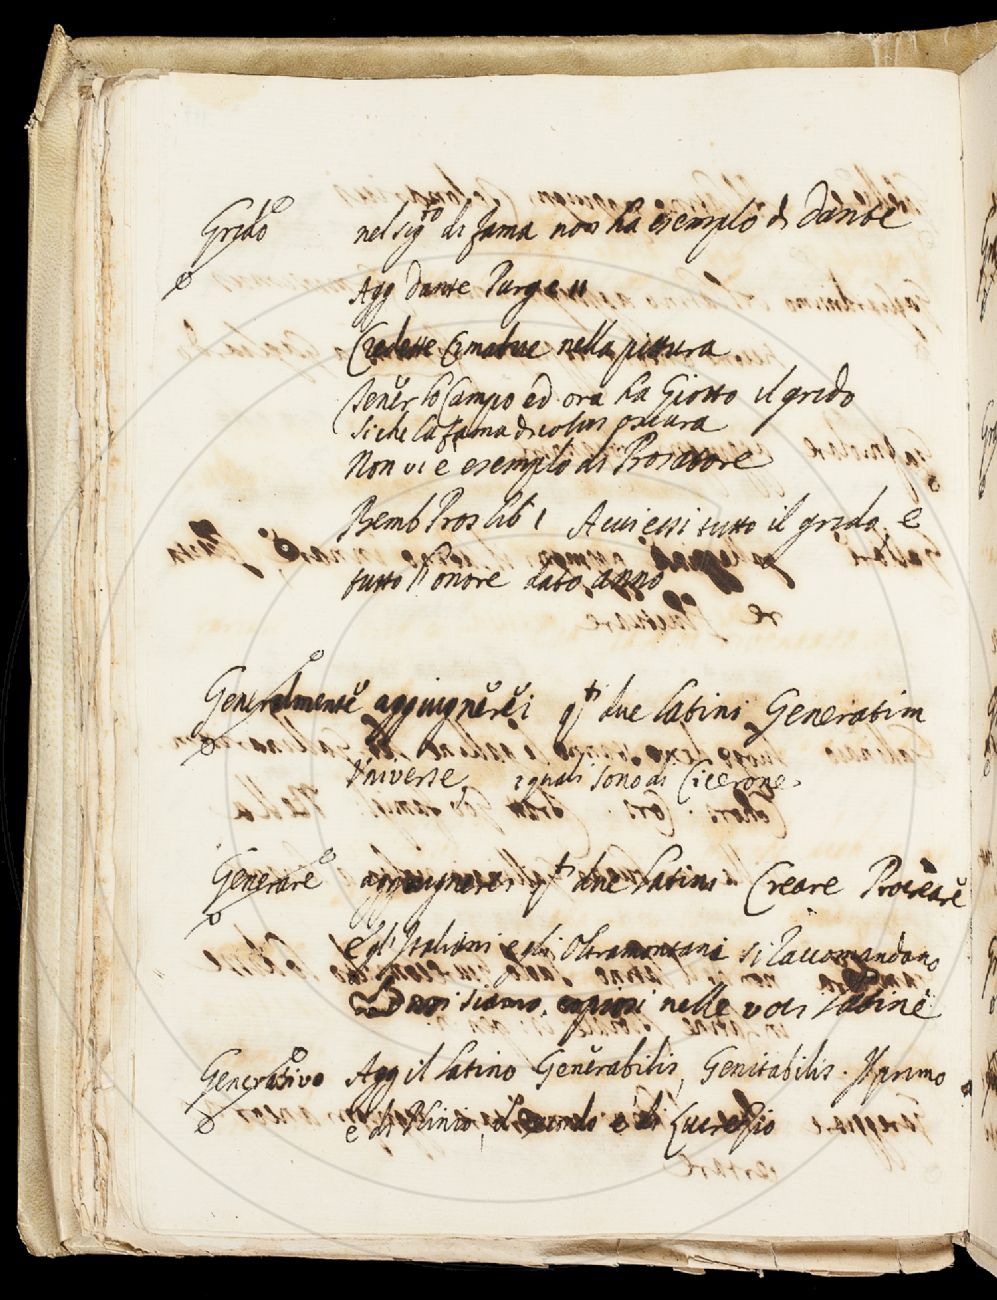 Grido nel sig.to di fama non ha esemplo di Dante
Agg Dante Purg e 11
Credette Cimabue nella pittura
tener lo Campo ed ora ha Giotto il grido
Si che la fama di colui oscura
Non vi e esemplo di Prosatore
Bemb Pros lib 1 Avviessi tutto il grido e
tutto l'onore dato anno
Generalmente aggiugnerei q.ti due latini Generatim
Universe, i quali sono di Cicerone.
Generare aggiugnerei q.ti due latini Creare Procreare
e gl'Italiani e gli Oltramontani si raccomandano
noi siamo copiosi nelle voci latine
Generativo Agg il latino Generabilis, Genitabilis. Il primo
e di Plinio, il secondo e di Lucrezio